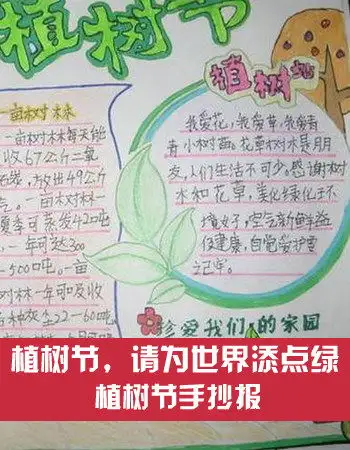 植树节
一亩树林
一亩树林每天能
收67公斤二氧
炭,放出49公斤
。一亩树林一
夏季可蒸发42吨
一年可达300
—500吨。一亩
树林一年可吸收
各种灰尘22—60吨
植树节
我爱花,我爱草,我爱青
青小树苗。花草树木是朋
友,人们生活不可少。感谢树
木和花草,美化绿化环
境好,空气新鲜益
保健康,自觉爱护要
记牢。
珍爱我们的家园
植树节,请为世界添点绿
植树节手抄报